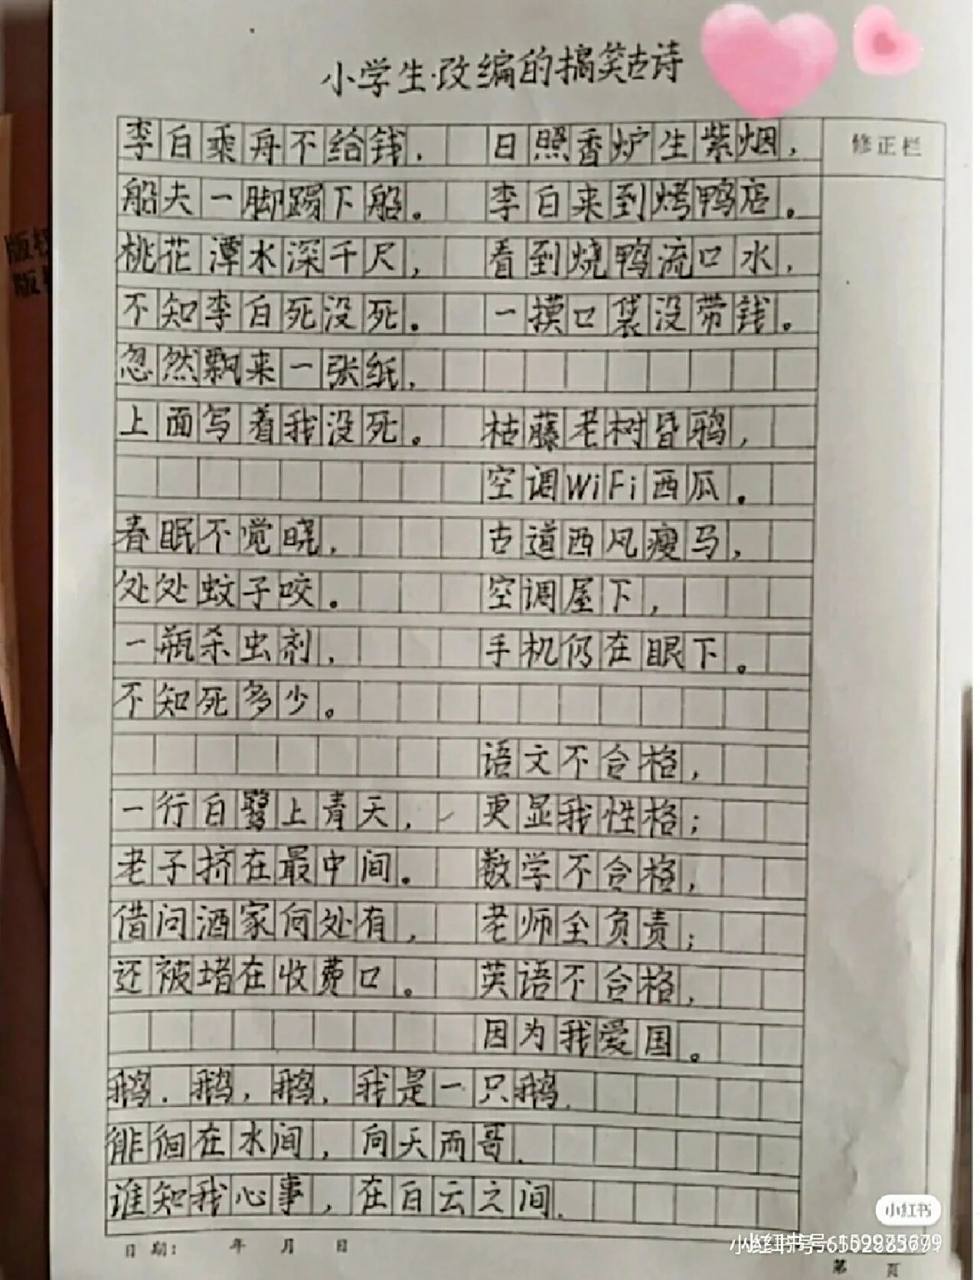 小学生改编的搞笑古诗
修正栏
李白乘舟不给钱，
船夫一脚蹋下船。
桃花潭水深千尺，
不知李白死没死。
忽然飘来一张纸，
上面写着我没死。
春眠不觉晓，
处处蚊子咬。
一瓶杀虫剂，
不知死多少。
一行白鹭上青天，
老子挤在最中间。
借问酒家何处有，
还被堵在收费口。
鹅，鹅，鹅，我是一只鹅，
徘徊在水间，向天而哥，
谁知我心事，在白云之间，
日照香炉生紫烟，
李白来到烤鸭店。
看到烧鸭流口水，
一摸口袋没带钱。
枯藤老树昏鸦，
空调WiFi西瓜。
古道西风瘦马，
空调屋下，
手机仍在眼下。
语文不合格，
更显我性格；
数学不合格，
老师全负责；
英语不合格，
因为我爱国。
日期： 年 月 日
第 页
小红书
小红书号
版
版